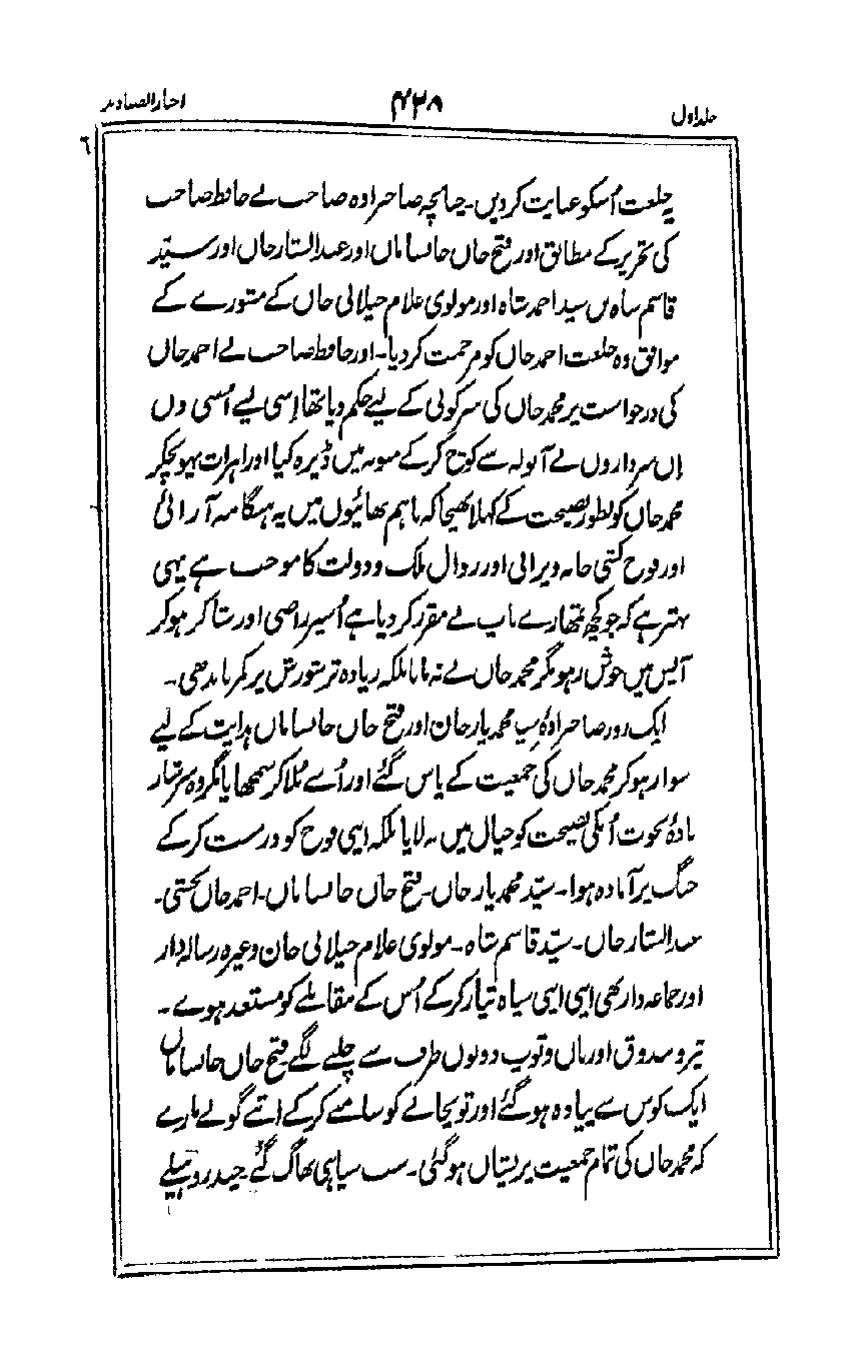 جلد اول ۴۲۸ اخبار الصنادید
یہ خلعت اُسکو عنایت کردیں۔ چنانچہ صاحبزادہ صاحب نے حافظ صاحب
کی تحریر کے مطابق اور فتح خاں خانساماں اور عبدالستار خاں اور سیّد
قاسم شاہ بن سید احمد شاہ اور مولوی غلام جیلانی خاں کے مشورے کے
موافق وہ خلعت احمد خاں کو مرحمت کردیا۔ اور حافظ صاحب نے احمد خاں
کی درخواست پر محمد خاں کی سرکوبی کے لیے حکم دیا تھا اِسی لیے اُسی دن
اِن سرداروں نے آنولہ سے کوچ کرکے منونہ میں ڈیرہ کیا اور اہرات پہونچکر
محمد خاں کو بطور نصیحت کے کہلا بھیجا کہ باہم بھائیوں میں یہ ہنگامہ آرائی
اور فوج کشی خانہ ویرانی اور زوال ملک و دولت کا موجب ہے یہی
بہتر ہے کہ جو کچھ تمھارے باپ نے مقرر کردیا ہے اُسپر راضی اور شاکر ہوکر
آپس میں خوش رہو مگر محمد خاں نے نہ مانا بلکہ زیادہ تر شورش پر کمر باندھی۔
ایک روز صاحبزادۂ سید محمد یار خان اور فتح خاں خانساماں ہدایت کے لیے
سوار ہوکر محمد خاں کی جمعیت کے پاس گئے اور اُسے بُلاکر سمجھایا مگر وہ سرشار
بادۂ نخوت اُنکی نصیحت کو خیال میں نہ لایا بلکہ اپنی فوج کو درست کرکے
جنگ پر آمادہ ہوا۔ سیّد محمد یار خاں۔ فتح خاں خانساماں۔ احمد خاں بخشی۔
عبدالستار خاں۔ سیّد قاسم شاہ۔ مولوی غلام جیلانی خان وغیرہ رسالہ دار
اور جماعہ دار بھی اپنی اپنی سپاہ تیار کرکے اُس کے مقابلے کو مستعد ہوے۔
تیر و بندوق اور بان و توپ دونوں طرف سے چلنے لگے فتح خاں خانساماں
ایک کوس سے پیادہ ہوگئے اور توپخانے کو سامنے کرکے اتنے گولے مارے
کہ محمد خاں کی تمام جمعیت پریشاں ہوگئی۔ سب سپاہی بھاگ گئے۔ چند روہیلے